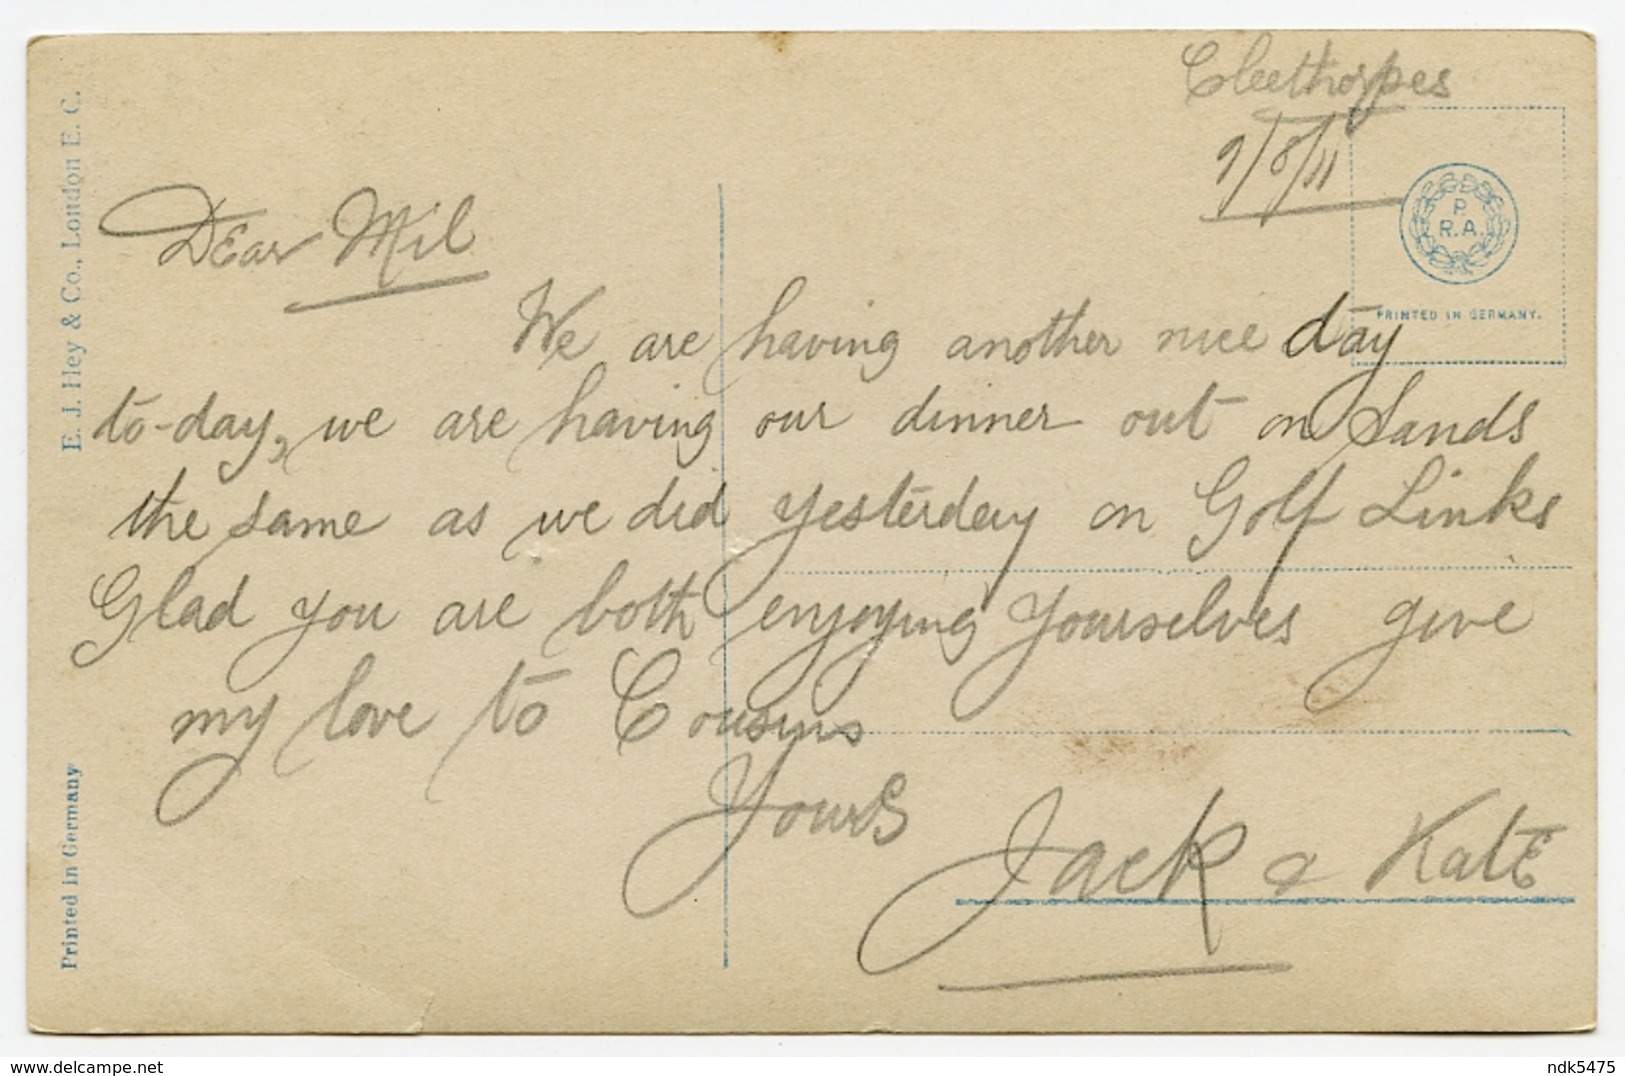 Cleethorpes
9/8/11
Dear Mil
We are having another nice day
to-day, we are having our dinner out on Sands
the same as we did yesterday on Golf Links
Glad you are both enjoying yourselves give
my love to Cousins
Yours
Jack & Kate
E. J. Hey & Co., London E. C.
Printed in Germany
P.
R.A.
PRINTED IN GERMANY.
delcampe.net
ndk5475